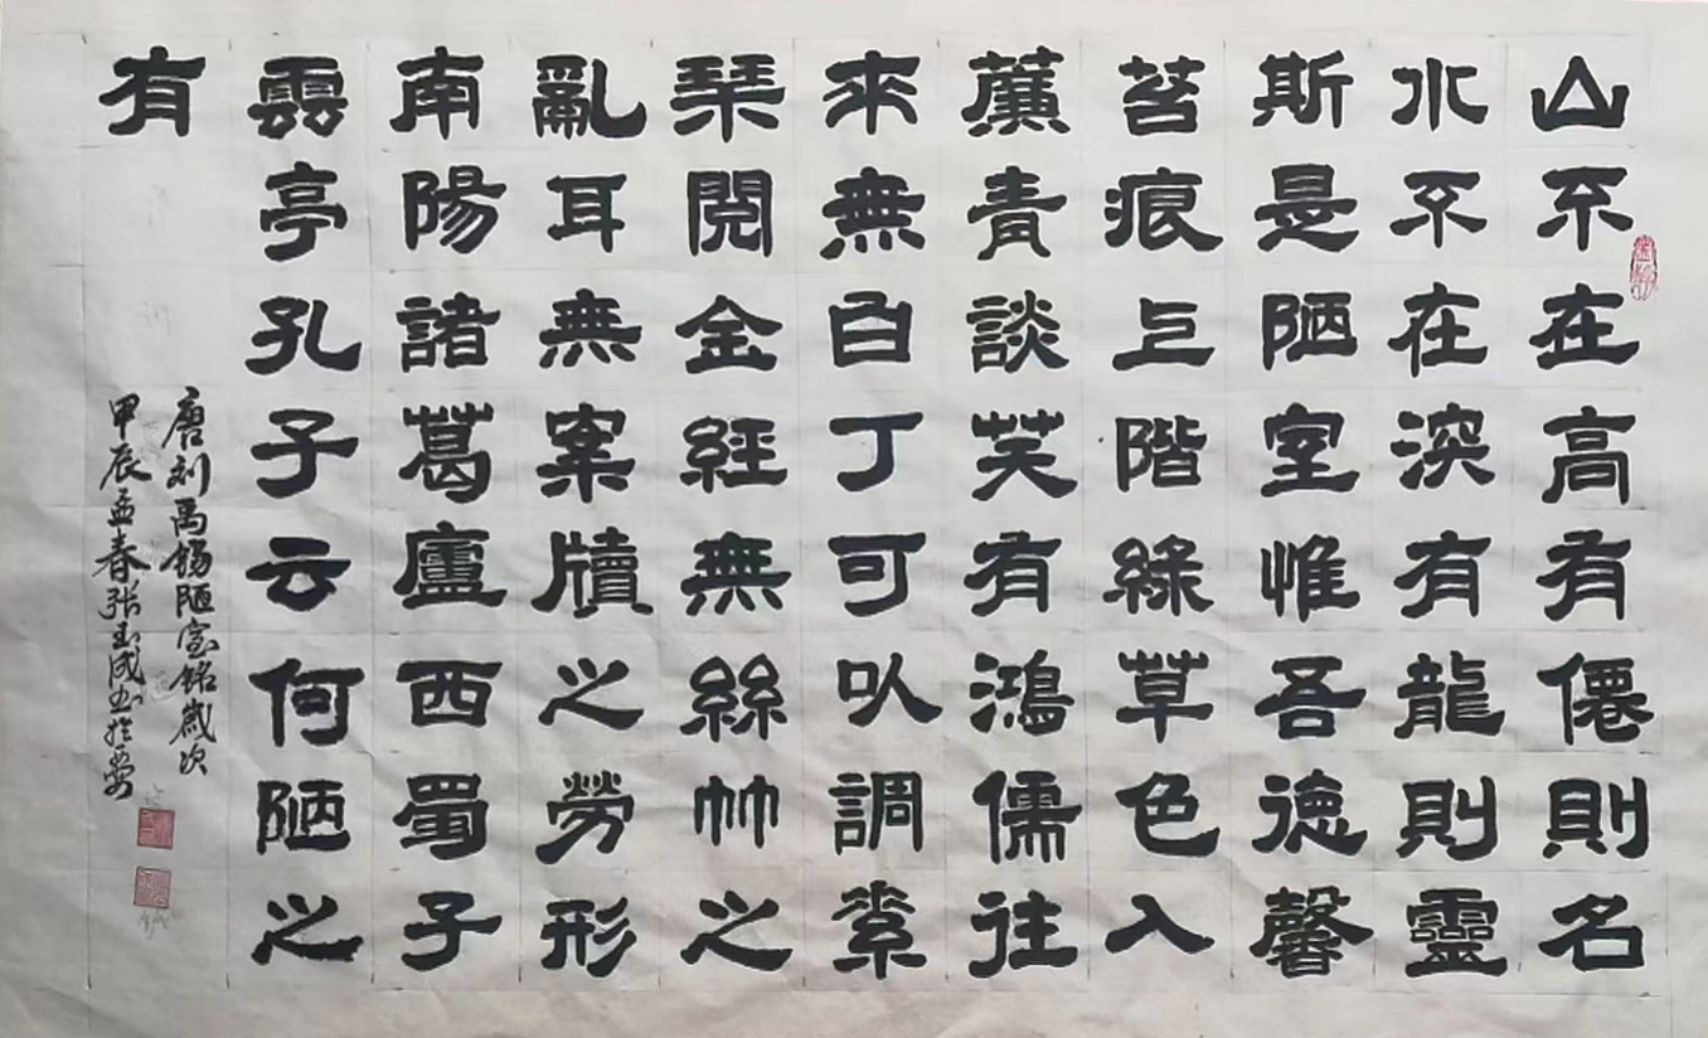 山不在高有僊則名
水不在深有龍則靈
斯是陋室惟吾德馨
苔痕上階綠草色入
簾青談笑有鴻儒往
來無白丁可以調素
琴閱金經無絲竹之
亂耳無案牘之勞形
南陽諸葛廬西蜀子
雲亭孔子云何陋之
有
唐刘禹錫陋室銘歲次
甲辰孟春张玉成书於